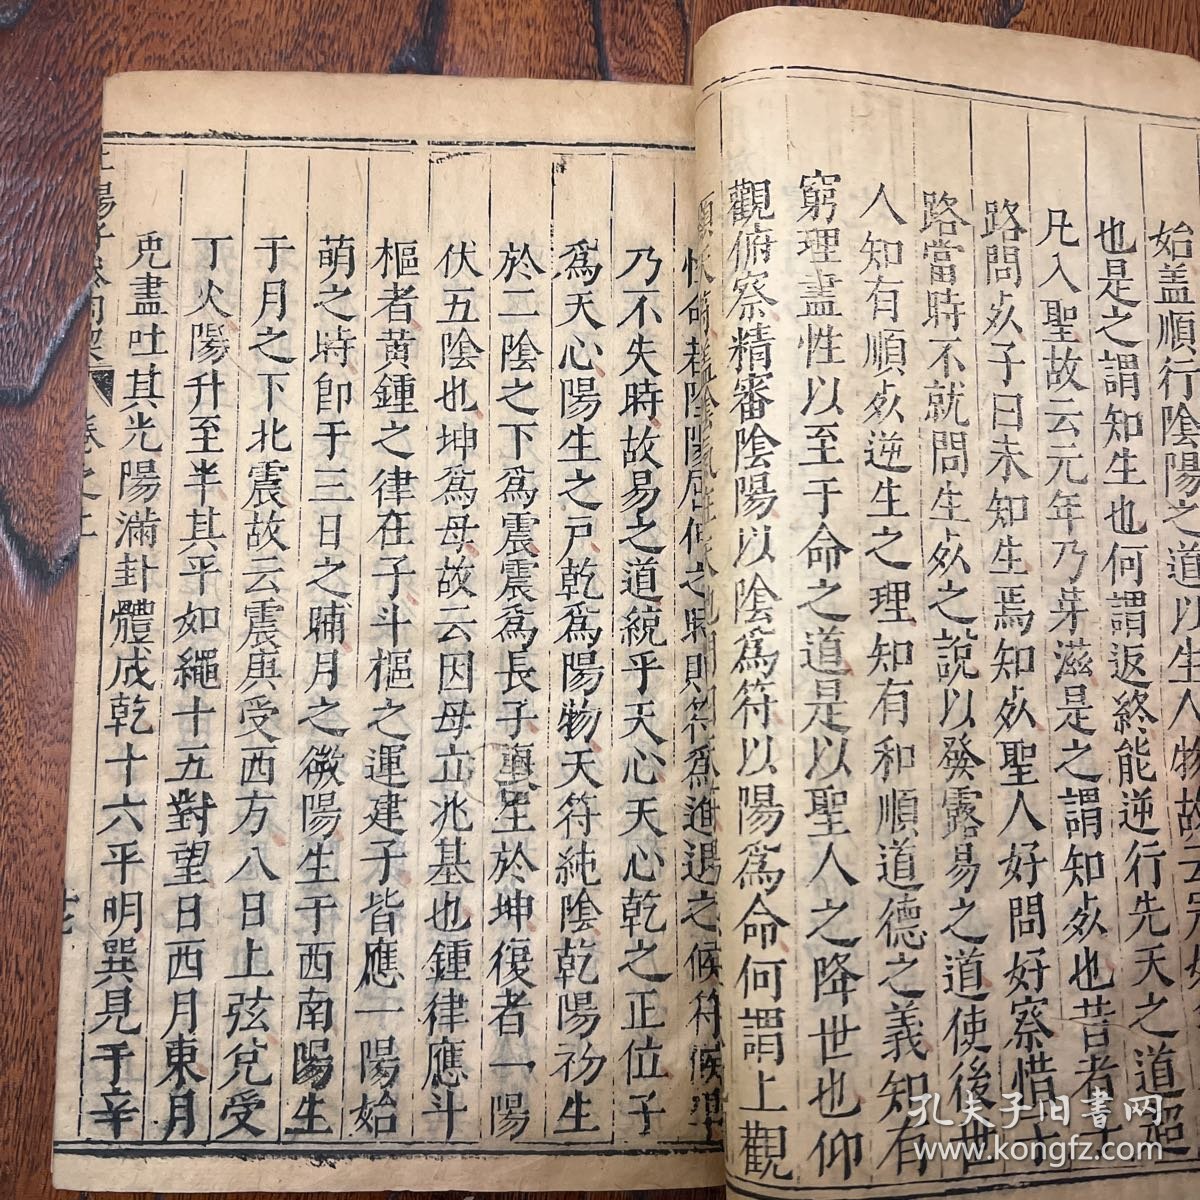 始盖順行陰陽之道以生人物故云
也是之謂知生也何謂返終能逆行先天之道
凡入聖故云元年乃芽滋是之謂知死也昔者
路問死子曰未知生焉知死聖人好問好察惜
路當時不就問生死之說以發露易之道使後世
人知有順死逆生之理知有和順道德之義知有
窮理盡性以至于命之道是以聖人之降世也仰
觀俯察精審陰陽以陰爲符以陽爲命何謂上觀
之候符候
乃不失時故易之道統乎天心天心乾之正位子
爲天心陽生之戸乾爲陽物天符純陰乾陽初生
於二陰之下爲震震爲長子䘮生於坤復者一陽
伏五陰也坤爲母故云因母立兆基也鍾律應斗
樞者黄鍾之律在子斗樞之運建子皆應一陽始
萌之時卽于三日之晡月之微陽生于西南陽生
于月之下北震故云震庚受西方八日上弦兌受
丁火陽升至半其平如繩十五對望日西月東月
兎盡吐其光陽滿卦體成乾十六平明巽見于辛
陽子參同契 卷之上
孔夫子旧書网
www.kongfz.com